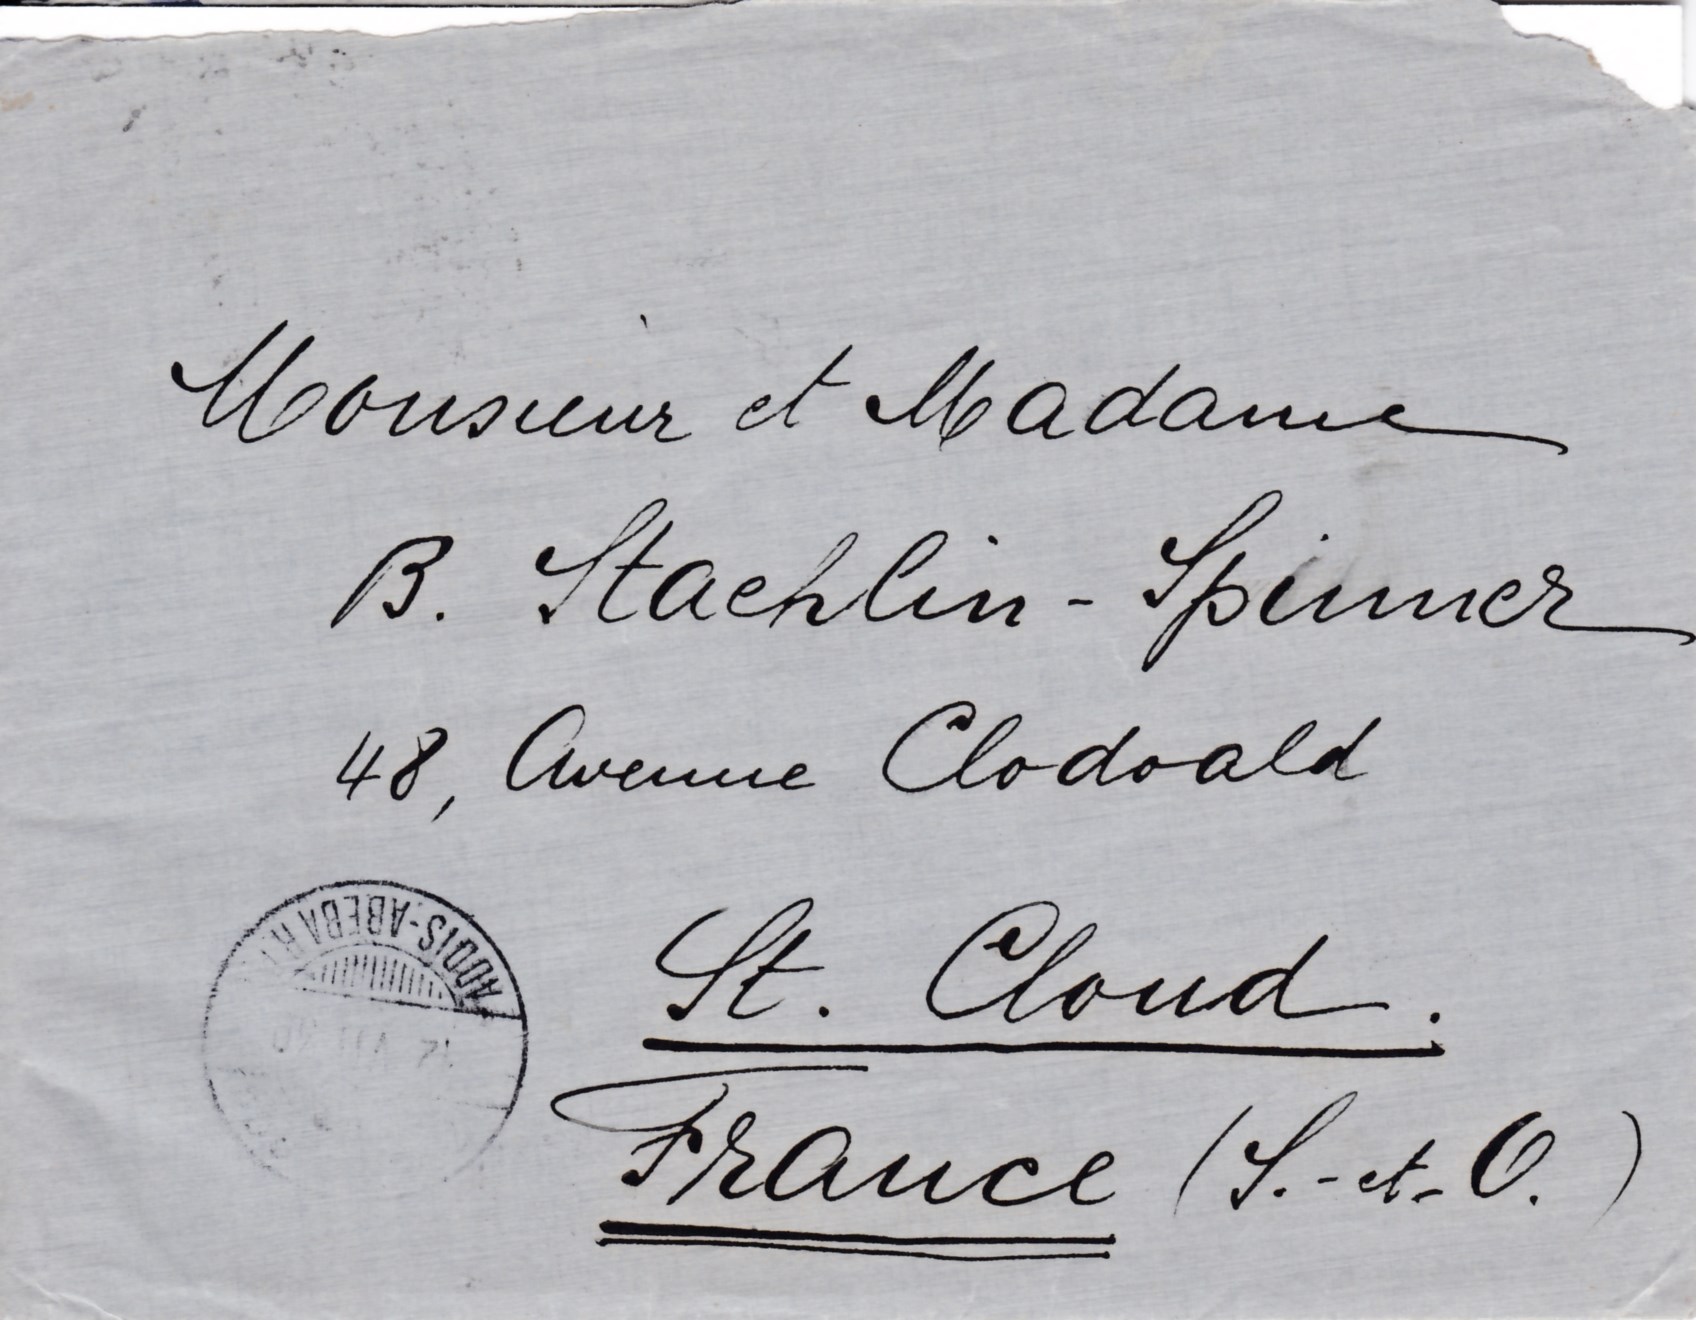 Monsieur et Madame
B. Staehlin-Spinner
48, Avenue Clodoald
St. Cloud.
France (S.-et-O.)
ADDIS-ABEBA